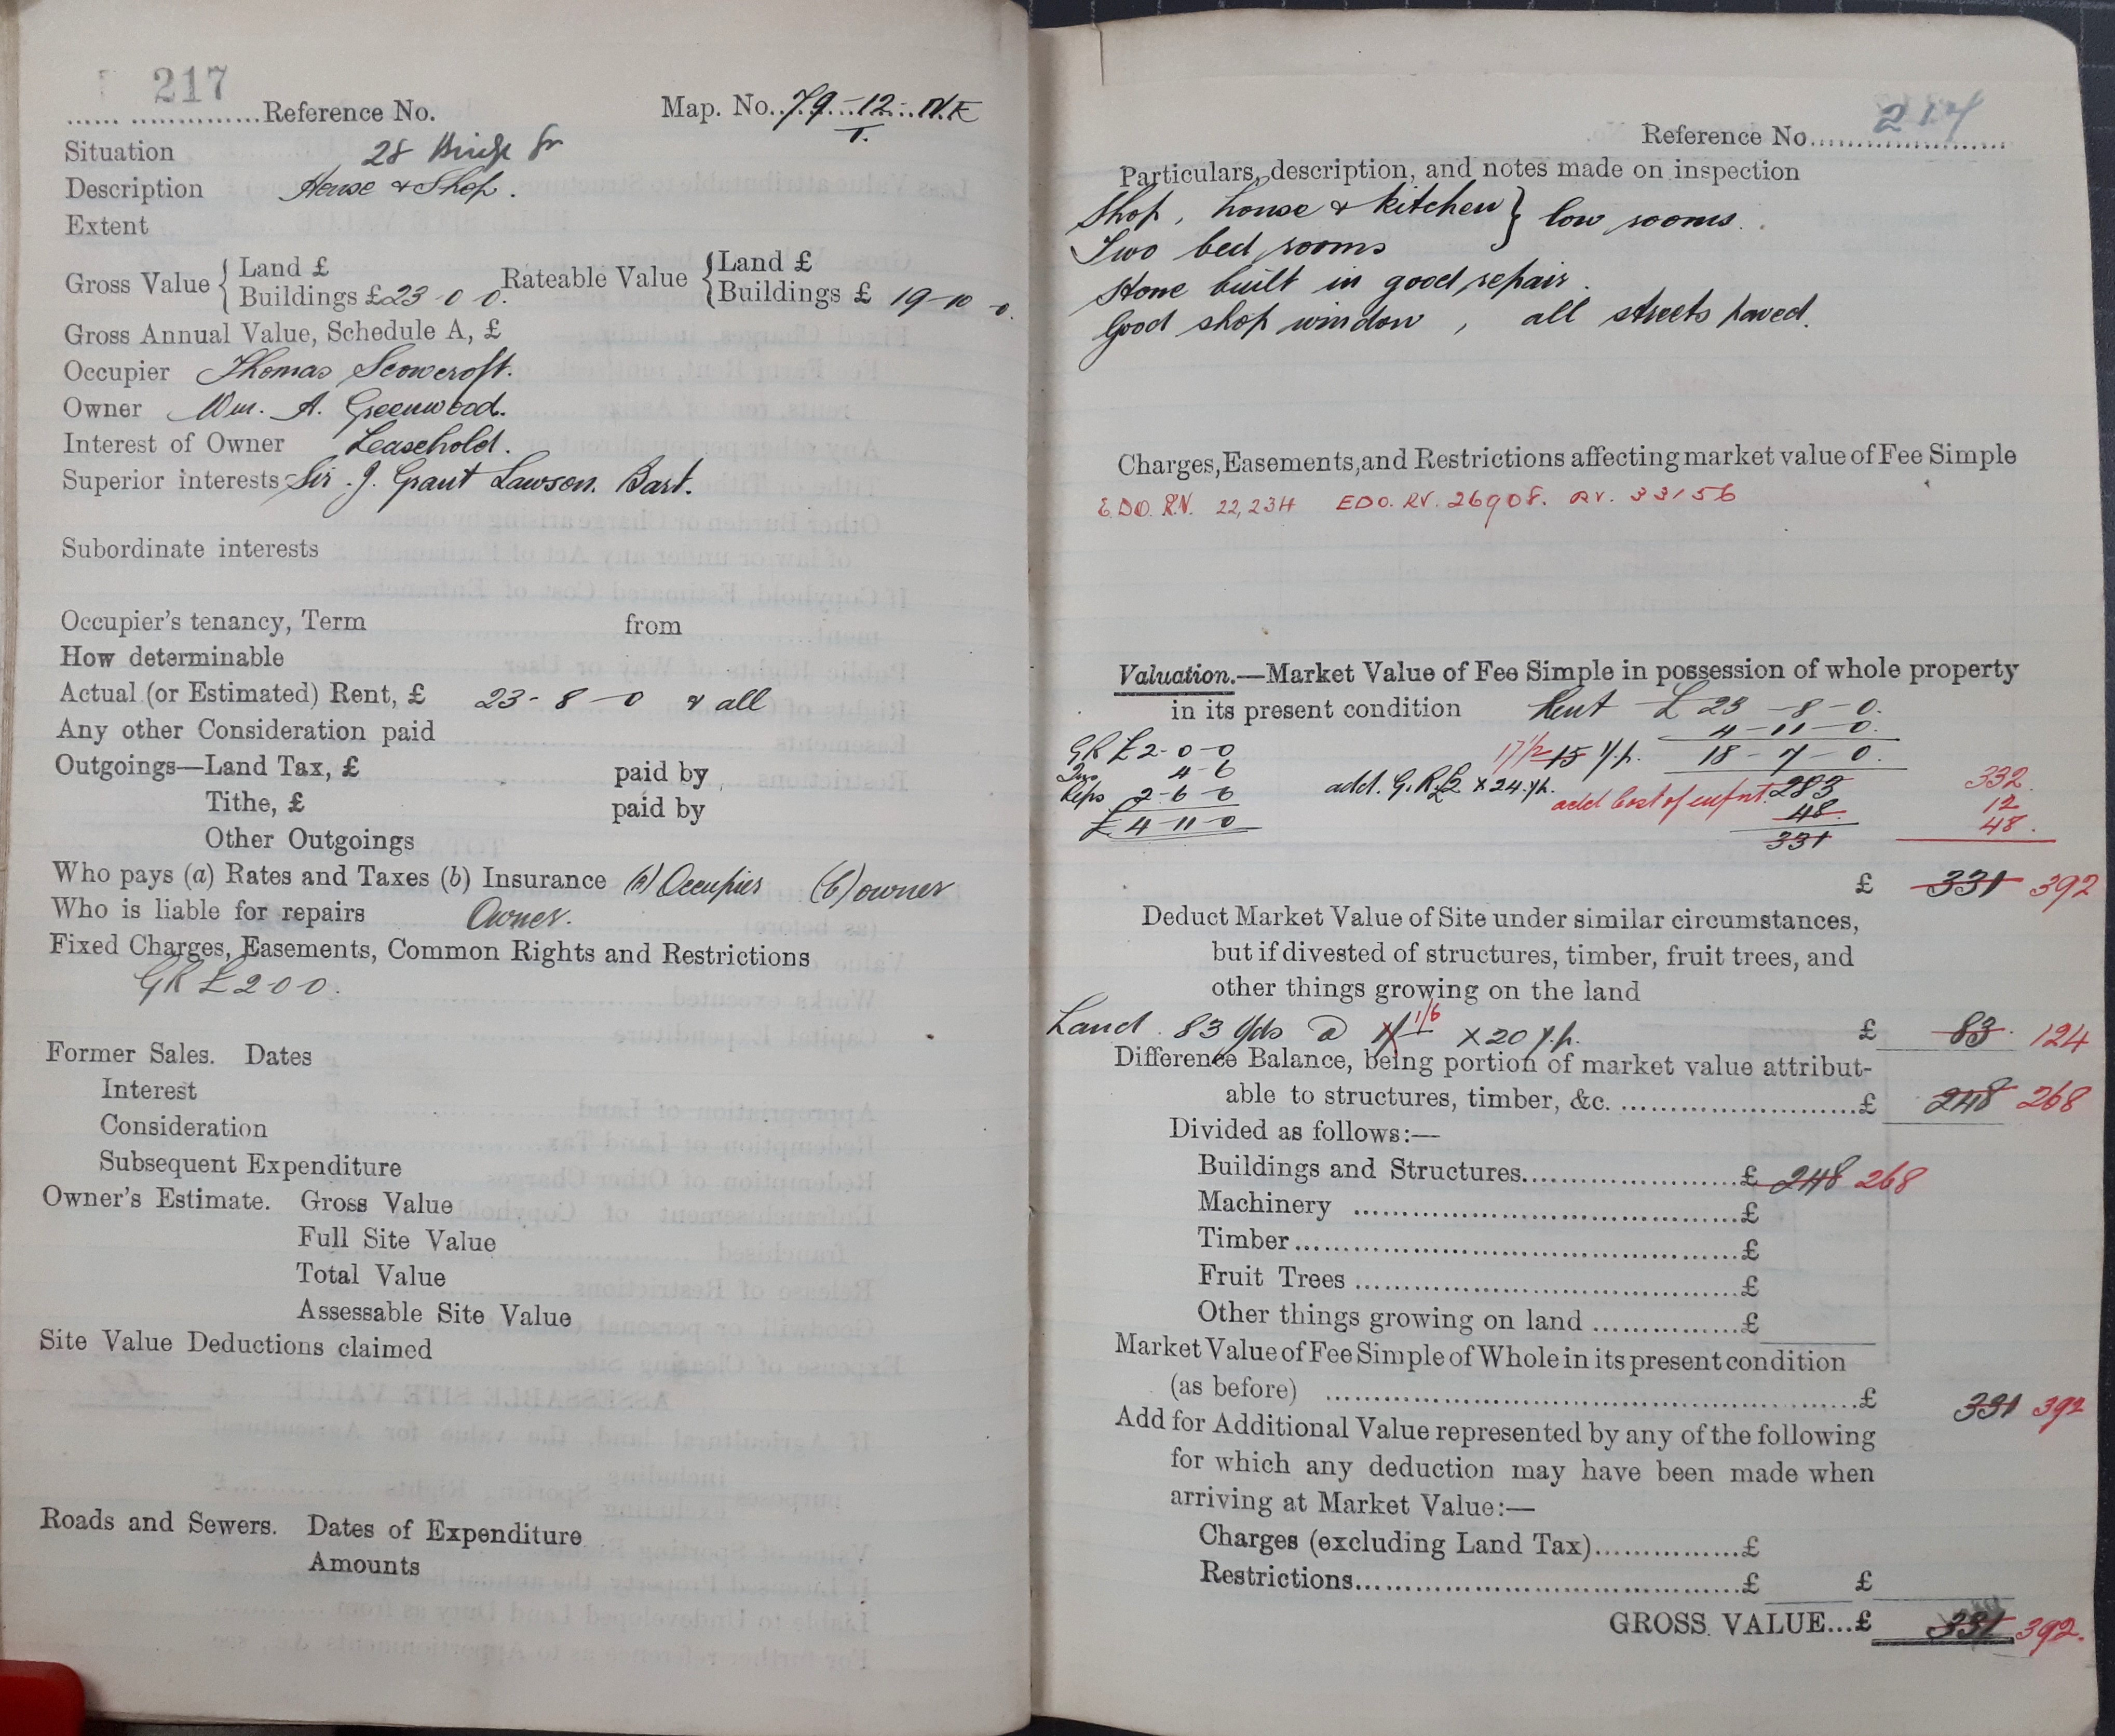 217
...... ..............Reference No. Map. No. 79-12-N.E
1.
Situation 28 Bridge St
Description House & Shop.
Extent
Gross Value { Land £
Buildings £23-0-0. Rateable Value { Land £
Buildings £ 19-10-0.
Gross Annual Value, Schedule A, £
Occupier Thomas Scowcroft.
Owner Wm. A. Greenwood.
Interest of Owner Leasehold.
Superior interests Sir. J. Grant Lawson. Bart.
Subordinate interests
Occupier's tenancy, Term from
How determinable
Actual (or Estimated) Rent, £ 23-8-0 & all
Any other Consideration paid
Outgoings—Land Tax, £ paid by
Tithe, £ paid by
Other Outgoings
Who pays (a) Rates and Taxes (b) Insurance (a) Occupier (b) owner
Who is liable for repairs Owner.
Fixed Charges, Easements, Common Rights and Restrictions
GR £2-0-0.
Former Sales. Dates
Interest
Consideration
Subsequent Expenditure
Owner's Estimate. Gross Value
Full Site Value
Total Value
Assessable Site Value
Site Value Deductions claimed
Roads and Sewers. Dates of Expenditure
Amounts
Reference No. 217
Particulars, description, and notes made on inspection
Shop, house & kitchen } low rooms.
Two bed rooms
Stone built in good repair.
Good shop window, all streets paved.
Charges, Easements, and Restrictions affecting market value of Fee Simple
E.DO. R.V. 22,234 EDO. RV. 26908. RV. 33156
Valuation.—Market Value of Fee Simple in possession of whole property
in its present condition Rent £ 23-8-0.
4-11-0.
GR £2-0-0 17½ 15 Y.p. 18-7-0.
Ins 4-6
Reps 2-6-6 add. G.R. £2 x 24 Y.p. add Cost of enfnt. 283 332
£4-11-0 48. 12
331 48.
£ 331 392
Deduct Market Value of Site under similar circumstances,
but if divested of structures, timber, fruit trees, and
other things growing on the land
Land. 83 Yds @ 1/- 1/6 x 20 Y.p. £ 83. 124
Difference Balance, being portion of market value attribut-
able to structures, timber, &c. ........................£ 248 268
Divided as follows:—
Buildings and Structures......................£ 248 268
Machinery ......................................£
Timber............................................£
Fruit Trees ......................................£
Other things growing on land ...............£
Market Value of Fee Simple of Whole in its present condition
(as before) ......................................................£ 331 392
Add for Additional Value represented by any of the following
for which any deduction may have been made when
arriving at Market Value:—
Charges (excluding Land Tax)...............£
Restrictions......................................£ £
GROSS VALUE...£ 331 392.